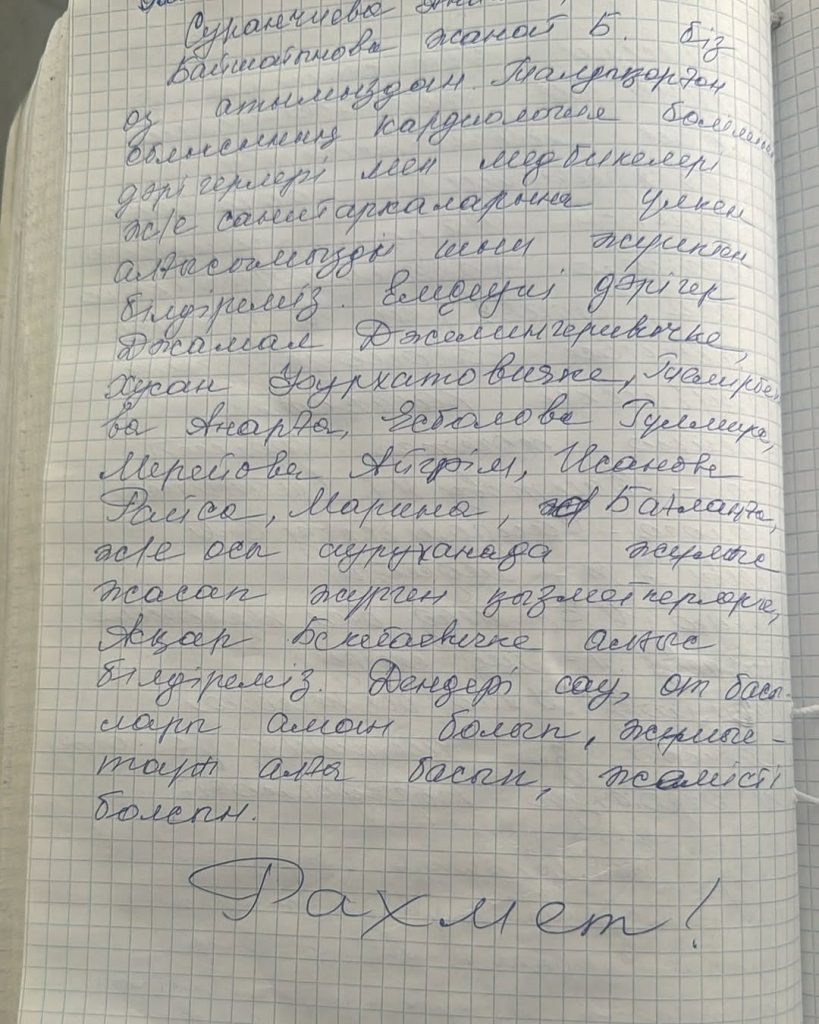 Суранчиева
Байшатынова Жанат Б. біз
өз атымыздан Талдықорған
облысының кардиология бөлімінің
дәрігерлері мен медбикелері
ж/е санитаркаларына үлкен
алғысымызды шын жүректен
білдіреміз. Емдеуші дәрігер
Джамал Джелингеривичке,
Хусан Нурхатовичке,
ва Анарға, Есболова Гулмира,
Мерейова Айгерім, Исанова
Раиса, Марина, Бағланға,
ж/е осы ауруханада жұмыс
жасап жүрген қызметкерлерге,
Аққар Бекебаевичке алғыс
білдіреміз. Дендері сау, от басы-
лары аман болып, жұмыс-
тары алға басып, жемісті
болсын.
Рахмет!